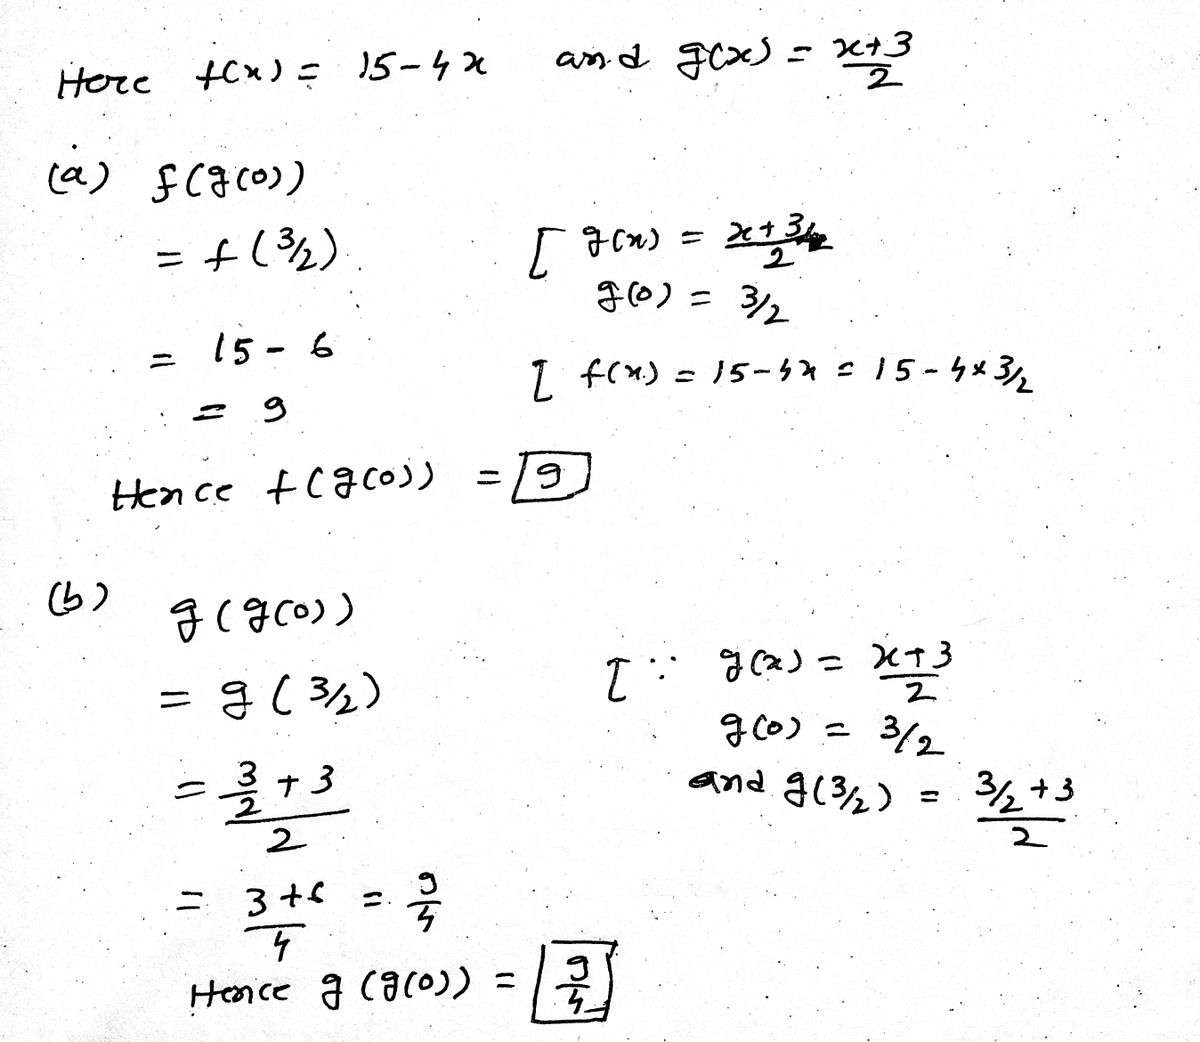 Here f(x) = 15-4x and g(x) = x+3/2
(a) f(g(0))
= f(3/2) [ g(x) = x+3/2
g(0) = 3/2
= 15-6 [ f(x) = 15-4x = 15-4×3/2
= 9
Hence f(g(0)) = 9
(b) g(g(0))
= g(3/2) [∵ g(x) = x+3/2
g(0) = 3/2
= 3/2+3/2 and g(3/2) = 3/2+3/2
= 3+6/4 = 9/4
Hence g(g(0)) = 9/4